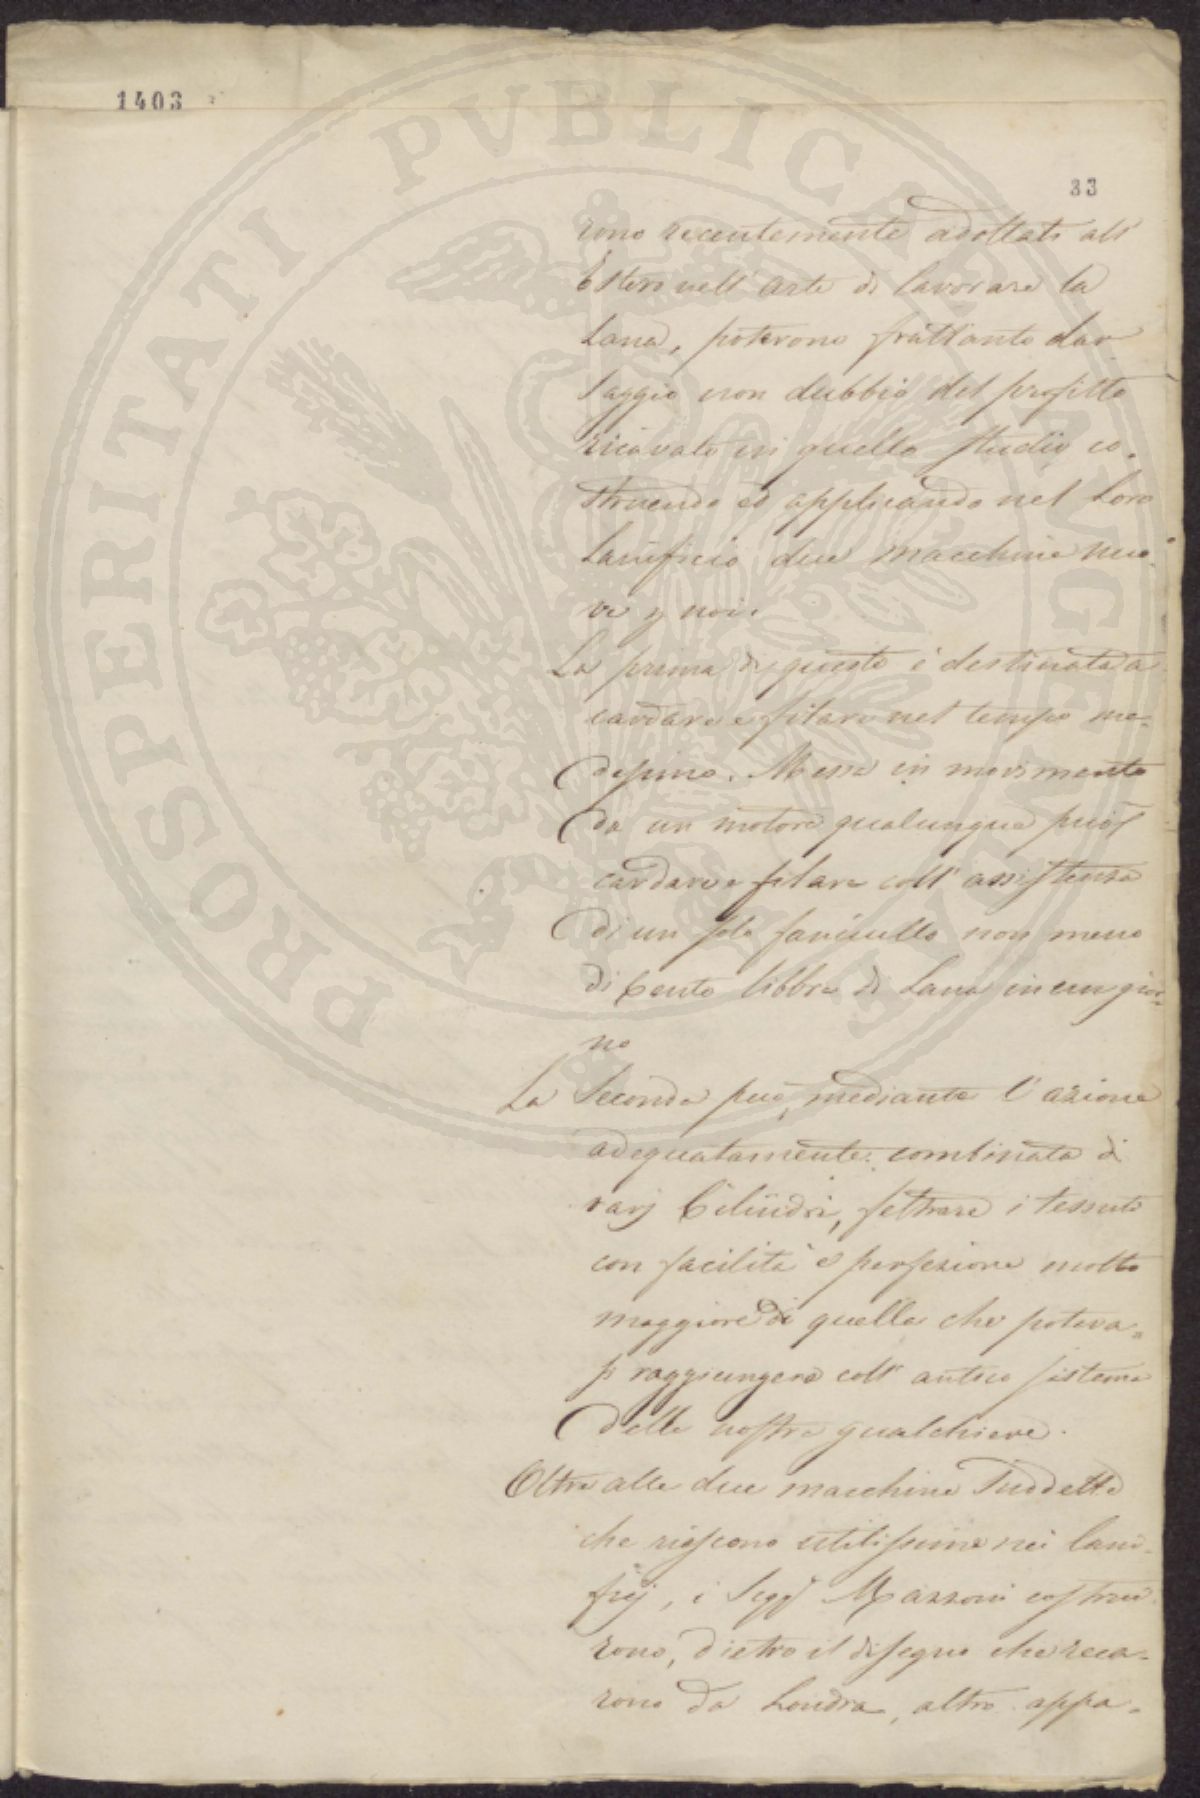 1403
33
PROSPERITATI PVBLICAE AVGENDAE
rono recentemente adottati all'
Estero nell'arte di lavorare la
Lana, poterono frattanto dar
saggio non dubbio del profitto
ricavato in quello studio co-
struendo ed applicando nel Loro
Lanificio due macchine nuo
ve p noi.
La prima di queste è destinata a
cardare e filare nel tempo me-
desimo. Messa in movimento
da un motore qualunque può
cardare e filare coll'assistenza
di un solo fanciullo non meno
di Cento libbre di Lana in un gior-
no
La Seconda può, mediante l'azione
adeguatamente combinata di
varj Cilindri, feltrare i tessuti
con facilità e perfezione molto
maggiore di quella che poteva-
si raggiungere coll'antico sistema
delle nostre gualchiere.
Oltre alle due macchine suddette
che riescono utilissime nei lani-
ficj, i Sigg.i Mazzoni costrui
rono, dietro il disegno che reca-
rono da Londra, altro appa-